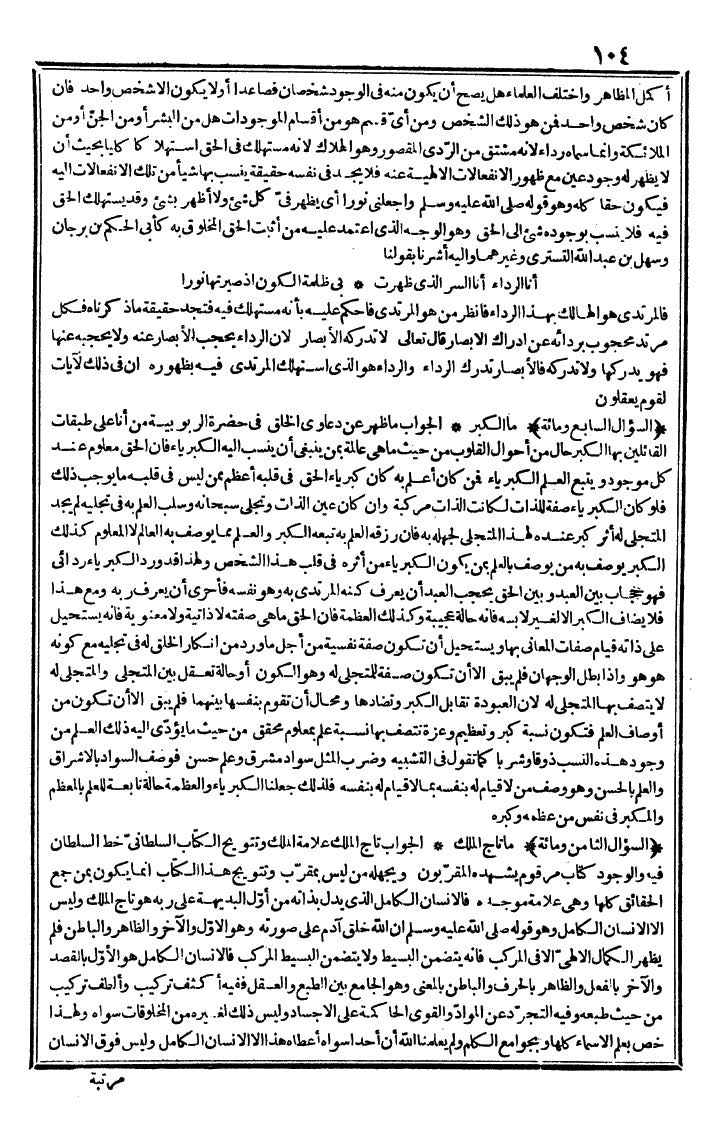 ١٠٤
أكمل المظاهر واختلف العلماء هل يصح أن يكون منه فى الوجود شخصان فصاعدا أولا يكون الا شخص واحد فان
كان شخص واحد فمن هو ذلك الشخص ومن أىّ قسم هو من أقسام الموجودات هل من البشر أو من الجنّ أو من
الملائكة وانما سماه رداء لانه مشتق من الردى المقصور وهو الهلاك لانه مستهلك فى الحق استهلاكا كليا بحيث أن
لا يظهر له وجود عين مع ظهور الانفعالات الالهية عنه فلا يجد فى نفسه حقيقة ينسب بها شيأ من تلك الانفعالات اليه
فيكون حقا كله وهو قوله صلى الله عليه وسلم واجعلنى نورا أى يظهر فىّ كل شئ ولا أظهر بشئ وقد يستهلك الحق
فيه فلا ينسب بوجوده شئ الى الحق وهو الوجه الذى اعتمد عليه من أثبت الحق المخلوق به كأبى الحكم بن برجان
وسهل بن عبد الله التسترى وغيرهما واليه أشرنا بقولنا
أنا الرداء أنا السر الذى ظهرت * فى ظلمة الكون اذ صيرتها نورا
فالمرتدى هو الهالك بهذا الرداء فانظر من هو المرتدى فاحكم عليه بأنه مستهلك فيه فتجد حقيقة ماذكرناه فكل
مرتد محجوب بردائه عن ادراك الابصار قال تعالى لا تدركه الأبصار لان الرداء يحجب الأبصار عنه ولا يحجبه عنها
فهو يدركها ولا تدركه فالأبصار تدرك الرداء والرداء هو الذى استهلك المرتدى فيه بظهوره ان فى ذلك لآيات
لقوم يعقلون
﴿السؤال السابع ومائة﴾ ما الكبر * الجواب ما ظهر عن دعاوى الخلق فى حضرة الربوبية من أنا على طبقات
القائلين بها الكبر حال من أحوال القلوب من حيث ماهى عالمة بمن ينبغى أن ينسب اليه الكبرياء فان الحق معلوم عند
كل موجود ويتبع العلم الكبرياء فمن كان أعلم به كان كبرياء الحق فى قلبه أعظم ممن ليس فى قلبه ما يوجب ذلك
فلو كان الكبرياء صفة للذات لكانت الذات مركبة وان كان عين الذات وتجلى سبحانه وسلب العلم به فى تجليه لم يجد
المتجلى له أثر كبر عنده لهذا المتجلى لجهله به فان رزقه العلم به تبعه الكبر والعلم مما يوصف به العالم لا المعلوم كذلك
الكبر يوصف به من يوصف بالعلم بمن يكون الكبرياء من أثره فى قلب هذا الشخص ولهذا قد ورد الكبرياء ردائى
فهو حجاب بين العبد و بين الحق يحجب العبد أن يعرف كنه المرتدى به وهو نفسه فأحرى أن يعرف ربه ومع هذا
فلا يضاف الكبر الا لغير لابسه فانه حالة عجيبة وكذلك العظمة فان الحق ماهى صفته لا ذاتية ولا معنوية فانه يستحيل
على ذاته قيام صفات المعانى بها ويستحيل أن تكون صفة نفسية من أجل ما ورد من انكار الخلق له فى تجليه مع كونه
هو هو واذا بطل الوجهان فلم يبق الا أن تكون صفة للمتجلى له وهو الكون أو حالة تعقل بين المتجلى والمتجلى له
لا يتصف بها المتجلى له لان العبودة تقابل الكبر وتضادها ومحال أن تقوم بنفسها بينهما فلم يبق الا أن تكون من
أوصاف العلم فتكون نسبة كبر وتعظيم وعزة تتصف بها نسبة علم بمعلوم محقق من حيث ما يؤدّى اليه ذلك العلم من
وجود هذه النسب ذوقا وشربا كما تقول فى التشبيه وضرب المثل سواد مشرق وعلم حسن فوصف السواد بالاشراق
والعلم بالحسن وهو وصف من لا قيام له بنفسه بما لا قيام له بنفسه فلذلك جعلنا الكبرياء والعظمة حالة تابعة للعلم بالمعظم
والمكبر فى نفس من عظمه وكبره
﴿السؤال الثامن ومائة﴾ ماتاج الملك * الجواب تاج الملك علامة الملك وتتويج الكتاب السلطانىّ خط السلطان
فيه والوجود كتاب مرقوم يشهده المقرّبون ويجهله من ليس بمقرّب وتتويج هذا الكتاب انما يكون بمن جمع
الحقائق كلها وهى علامة موجده * فالانسان الكامل الذى يدل بذاته من أوّل البديهة على ربه هو تاج الملك وليس
الا الانسان الكامل وهو قوله صلى الله عليه وسلم ان الله خلق آدم على صورته وهو الاوّل والآخر والظاهر والباطن فلم
يظهر الكمال الالهىّ الا فى المركب فانه يتضمن البسيط ولا يتضمن البسيط المركب فالانسان الكامل هو الأوّل بالقصد
والآخر بالفعل والظاهر بالحرف والباطن بالمعنى وهو الجامع بين الطبع والعقل ففيه أكثف تركيب وألطف تركيب
من حيث طبعه وفيه التجرّد عن الموادّ والقوى الحاكمة على الاجساد وليس ذلك لغيره من المخلوقات سواه ولهذا
خص بعلم الاسماء كلها وبجوامع الكلم ولم يعلمنا الله أن أحدا سواه أعطاه هذا الا الانسان الكامل وليس فوق الانسان
مرتبة